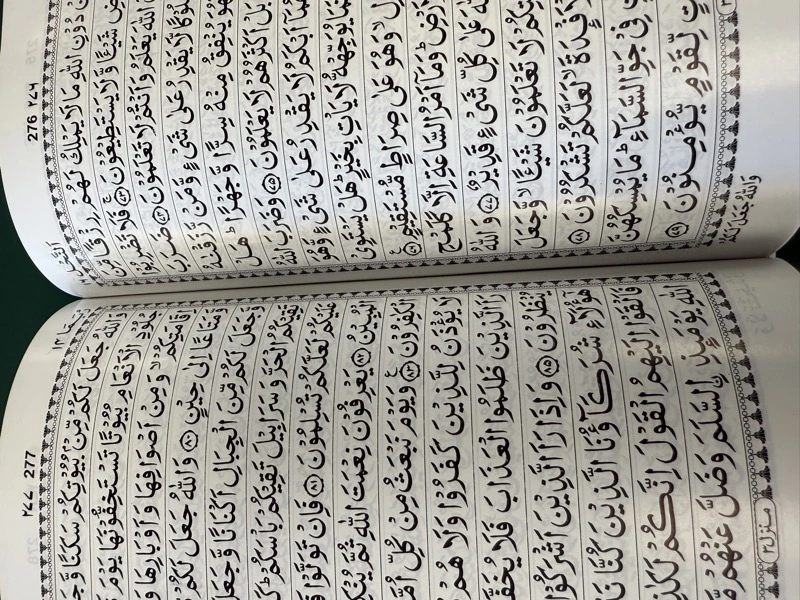 276 ٢٧٦
دُوْنِ اللّٰهِ مَا لَا يَمْلِكُ لَهُمْ رِزْقًا مِّنَ
شَيْـًٔا وَّلَا يَسْتَطِيْعُوْنَ ﴿٧٣﴾ فَلَا تَضْرِبُوْا
اللّٰهَ يَعْلَمُ وَاَنْتُمْ لَا تَعْلَمُوْنَ ﴿٧٤﴾ ضَرَبَ
لَّا يَقْدِرُ عَلٰى شَيْءٍ وَّمَنْ رَّزَقْنٰهُ
يُنْفِقُ مِنْهُ سِرًّا وَّجَهْرًا ؕ هَلْ
بَلْ اَكْثَرُهُمْ لَا يَعْلَمُوْنَ ﴿٧٥﴾ وَضَرَبَ اللّٰهُ
اَبْكَمُ لَا يَقْدِرُ عَلٰى شَيْءٍ وَّهُوَ
يُوَجِّهْهُّ لَا يَاْتِ بِخَيْرٍ ؕ هَلْ يَسْتَوِيْ
وَهُوَ عَلٰى صِرَاطٍ مُّسْتَقِيْمٍ ﴿٧٦﴾
وَمَاۤ اَمْرُ السَّاعَةِ اِلَّا كَلَمْحِ
عَلٰى كُلِّ شَيْءٍ قَدِيْرٌ ﴿٧٧﴾ وَاللّٰهُ
لَا تَعْلَمُوْنَ شَيْـًٔا ۙ وَّجَعَلَ
لَعَلَّكُمْ تَشْكُرُوْنَ ﴿٧٨﴾
فِيْ جَوِّ السَّمَآءِ ؕ مَا يُمْسِكُهُنَّ
لِّقَوْمٍ يُّؤْمِنُوْنَ ﴿٧٩﴾
وَاللّٰهُ جَعَلَ لَكُمْ
٢٧٧ 277
وَاللّٰهُ جَعَلَ لَكُمْ مِّنْۢ بُيُوْتِكُمْ سَكَنًا
جُلُوْدِ الْاَنْعَامِ بُيُوْتًا تَسْتَخِفُّوْنَهَا يَوْمَ
اِقَامَتِكُمْ ۙ وَمِنْ اَصْوَافِهَا وَاَوْبَارِهَا
وَّمَتَاعًا اِلٰى حِيْنٍ ﴿٨٠﴾ وَاللّٰهُ جَعَلَ لَكُمْ
وَّجَعَلَ لَكُمْ مِّنَ الْجِبَالِ اَكْنَانًا وَّجَعَلَ
تَقِيْكُمُ الْحَرَّ وَسَرَابِيْلَ تَقِيْكُمْ بَاْسَكُمْ ؕ
عَلَيْكُمْ لَعَلَّكُمْ تُسْلِمُوْنَ ﴿٨١﴾ فَاِنْ تَوَلَّوْا
الْمُبِيْنُ ﴿٨٢﴾ يَعْرِفُوْنَ نِعْمَتَ اللّٰهِ ثُمَّ
الْكٰفِرُوْنَ ﴿٨٣﴾ وَيَوْمَ نَبْعَثُ مِنْ كُلِّ
لَا يُؤْذَنُ لِلَّذِيْنَ كَفَرُوْا وَلَا هُمْ
رَاَ الَّذِيْنَ ظَلَمُوا الْعَذَابَ فَلَا
يُنْظَرُوْنَ ﴿٨٥﴾ وَاِذَا رَاَ الَّذِيْنَ اَشْرَكُوْا
هٰۤؤُلَآءِ شُرَكَآؤُنَا الَّذِيْنَ كُنَّا
فَاَلْقَوْا اِلَيْهِمُ الْقَوْلَ اِنَّكُمْ
اللّٰهِ يَوْمَئِذِ ِۨالسَّلَمَ وَضَلَّ عَنْهُمْ
منزل ٣